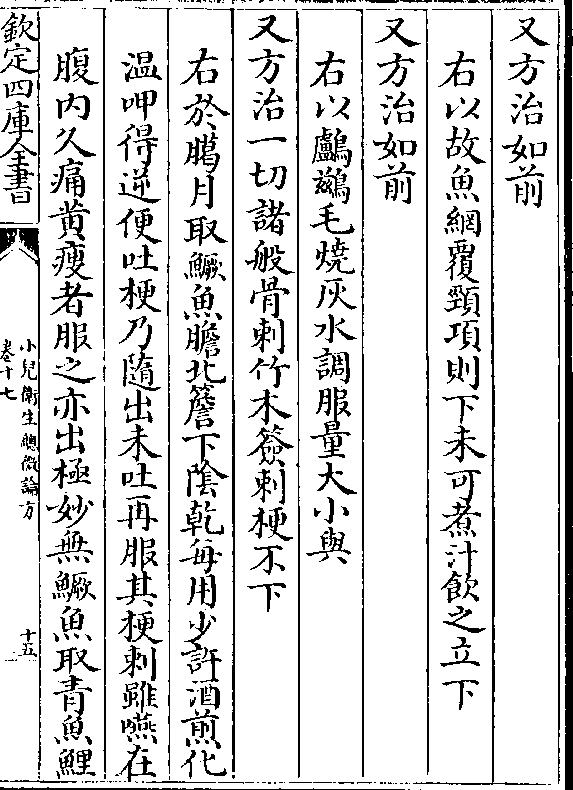 又方治如前
右以故魚網覆頸項則下未可煮汁飲之立下
又方治如前
右以鸕鷀毛燒灰水調服量大小與
又方治一切諸般骨刺竹木簽刺梗不下
右於臈月取鱖魚膽北簷下陰乾每用少許酒煎化
温呷得逆便吐梗乃隨出未吐再服其梗刺雖嚥在
腹内久痛黄瘦者服之亦出極妙無鱖魚取青魚鯉
欽定四庫全書
小兒衛生總微論方
卷十七
十五